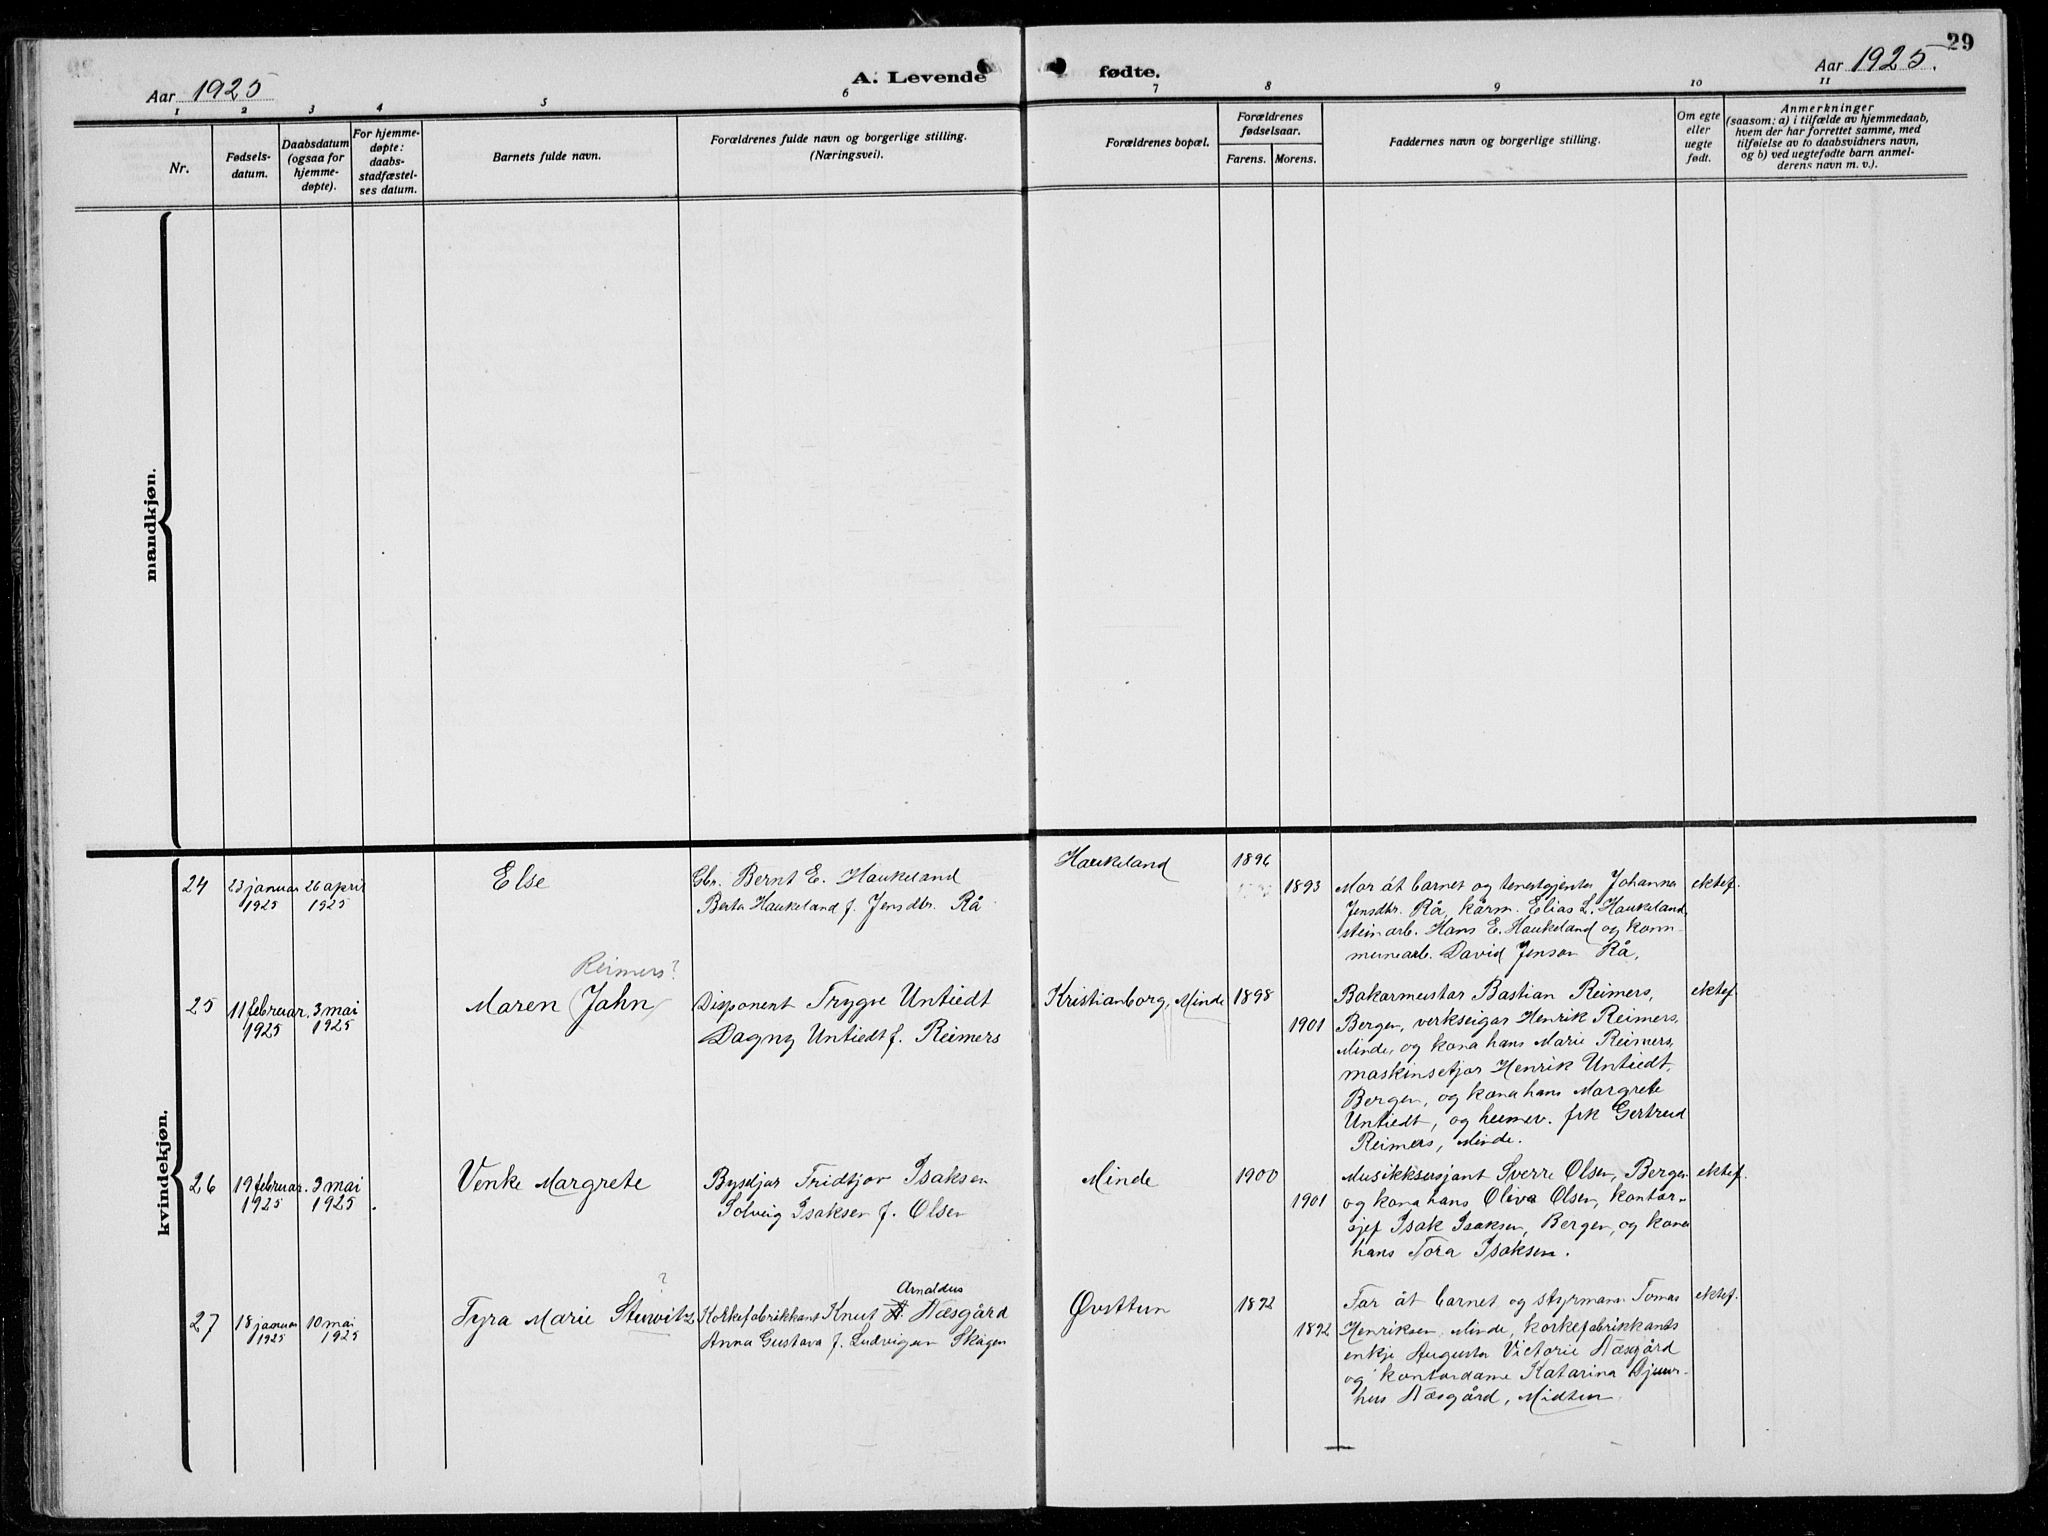 29
Aar 1925
A. Levende
fødte.
Aar 1925.
1 2 3 4 5 6 7 8 9 10 11
Nr.
Fødsels-
datum.
Daabsdatum
(ogsaa for
hjemme-
døpte).
For hjemme-
døpte:
daabs-
stadfæstel-
ses datum.
Barnets fulde navn.
Forældrenes fulde navn og borgerlige stilling.
(Næringsvei).
Forældrenes bopæl.
Forældrenes
fødselsaar.
Farens. Morens.
Faddernes navn og borgerlige stilling.
Om egte
eller
uegte
født.
Anmerkninger
(saasom: a) i tilfælde av hjemmedaab,
hvem der har forrettet samme, med
tilføielse av to daabsvidners navn,
og b) ved uegtefødte barn anmel-
derens navn m. v.).
mandkjøn.
kvindekjøn.
24
23 januar
1925
26 april
1925
Else
Gbr. Bernt E. Haukeland
Berta Haukeland f. Jensdtr. Rå
Haukeland
1896
1893
Mor åt barnet og tenestgjenta Johanna
Jensdtr. Rå, kårm. Elias L. Haukeland,
steinarb. Hans E. Haukeland og kom-
munearb. David Jenson Rå.
ektef.
25
11 februar
1925
3 mai
1925
Reimers?
Maren (Jahn)
Disponent Trygve Untiedt
Dagny Untiedt f. Reimers
Kristianborg, Minde
1898
1901
Bakarmeistar Bastian Reimers,
Bergen, verkseigar Henrik Reimers,
Minde, og kona hans Marie Reimers,
maskinsetjar Henrik Untiedt,
Bergen, og kona hans Margrete
Untiedt, og heimev. frk Gertrud
Reimers, Minde.
ektef
26
19 februar.
1925
3 mai
1925
Venke Margrete
Byseljar Fridtjov Isaksen
Solveig Isaksen f. Olsen
Minde
1900
1901
Musikksersjant Sverre Olsen, Bergen
og kona hans Oliva Olsen, kontor-
sjef Isak Isaksen, Bergen, og kona
hans Tora Isaksen.
ektef.
27
18 januar
1925
10 mai
1925
?
Tyra Marie Sturvitz
Arnaldus
Korkefabrikkant Knut A. Næsgård
Anna Gustava f. Ludvigsen Skagen
Øvsttun
1892
1892
Far åt barnet og styrmann Tomas
Henriksen, Minde, korkefabrikkants
enkje Augusta Victorie Næsgård
og kontordame Katarina Djuur-
hus Næsgård, Midtun.
ektef.